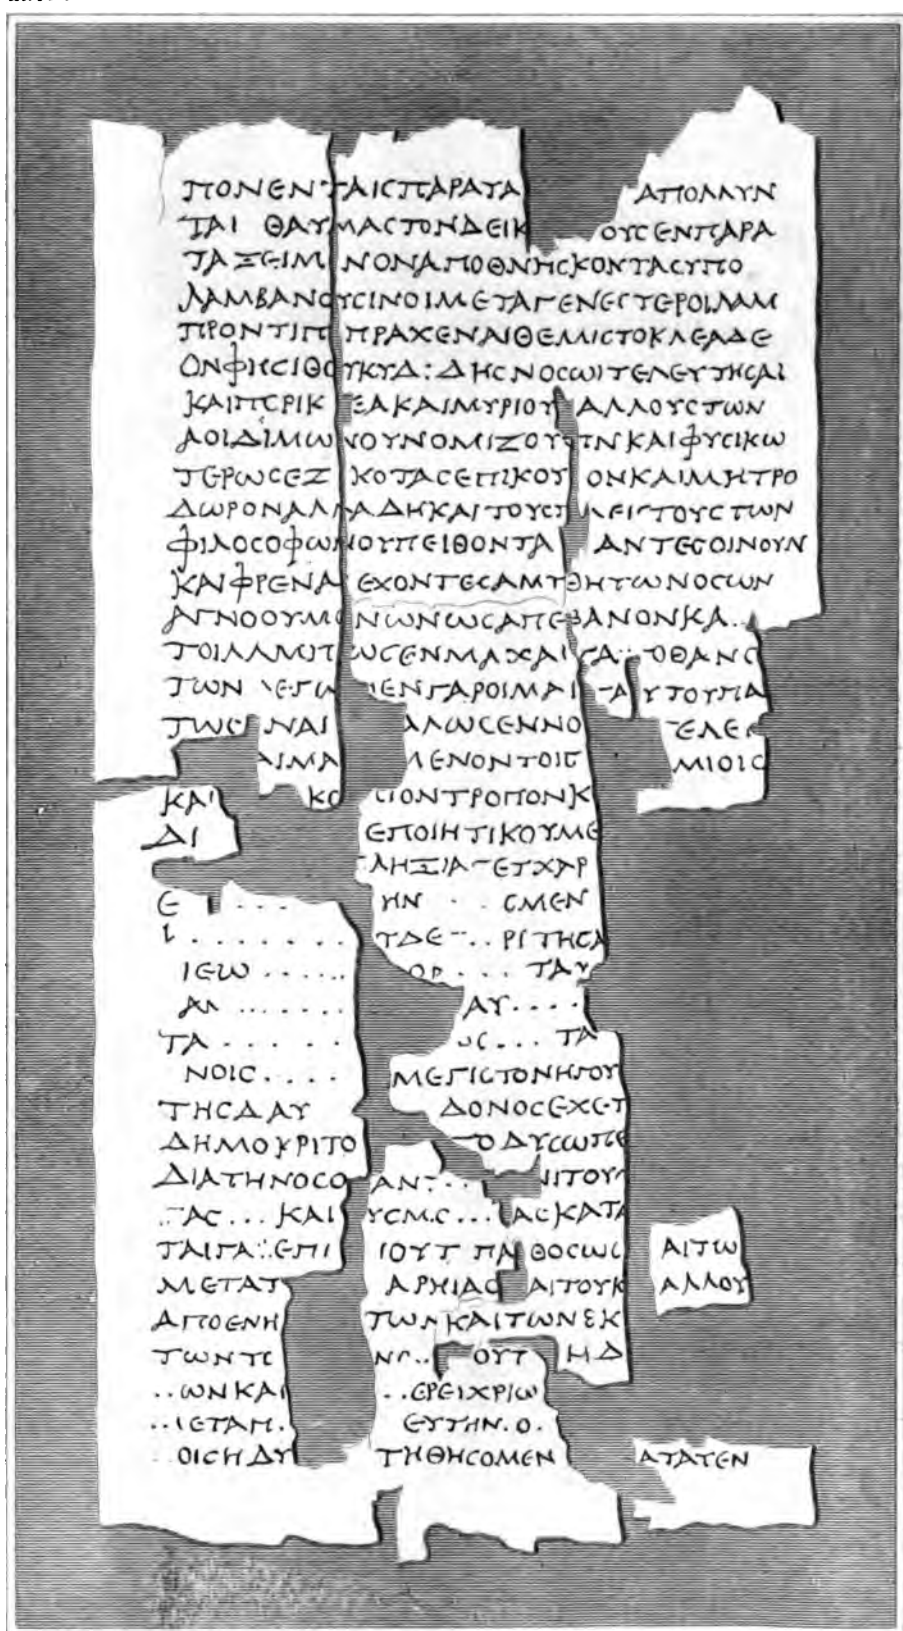 ΠΟΝΕΝΤΑΙϹΠΑΡΑΤΑ ΑΠΟΛΛΥΝ
ΤΑΙ ΘΑΥΜΑϹΤΟΝΔΕΙΚ ΟΥϹΕΝΠΑΡΑ
ΤΑΞΕΙΜ ΝΟΝΑΠΟΘΝΗϹΚΟΝΤΑϹΥΠΟ
ΛΑΜΒΑΝΟΥϹΙΝΟΙΜΕΤΑΓΕΝΕϹΤΕΡΟΙΛΑΜ
ΠΡΟΝΤΙΠ ΠΡΑΧΕΝΑΙΘΕΜΙϹΤΟΚΛΕΑΔΕ
ΟΝΦΗϹΙΘΟΥΚΥΔ:ΔΗϹΝΟϹΩΙΤΕΛΕΥΤΗϹΑΙ
ΚΑΙΠΕΡΙΚ ΕΑΚΑΙΜΥΡΙΟΥ ΑΛΛΟΥϹΤΩΝ
ΑΟΙΔΙΜΩΝΟΥΝΟΜΙΖΟΥ ΙΝΚΑΙΦΥϹΙΚΩ
ΤΕΡΩϹΕΖ ΚΟΤΑϹΕΠΙΚΟΥ ΟΝΚΑΙΜΗΤΡΟ
ΔΩΡΟΝΑΛΛΑΔΗΚΑΙΤΟΥϹΠΛΕΙϹΤΟΥϹΤΩΝ
ΦΙΛΟϹΟΦΩΝΟΥΠΕΙΘΟΝΤΑ ΑΝΤΕϹΟΙΝΟΥΝ
ΚΑΙΦΡΕΝΑ ΕΧΟΝΤΕϹΑΜΥΘΗΤΩΝΟϹΩΝ
ΑΓΝΟΟΥΜΕΝΩΝΩϹΑΠΕΘΑΝΟΝΚΑ..
ΤΟΙΛΑΜΠ ΩϹΕΝΜΑΧΑΙ ΤΑ..ΟΘΑΝΟ
ΤΩΝ ΛΕΓΩ ΕΝΓΑΡΟΙΜΑΙ ΤΑΥΤΟΥΠΑ
ΤΩϹ ΝΑΙ ΑΛΩϹΕΝΝΟ ΤΕΛΕΥ
ΑΙΜΑ ΕΝΟΝΤΟΙϹ ΜΙΟΙϹ
ΚΑΙ ΚΟ ΙΟΝΤΡΟΠΟΝΚ
ΔΙ ΕΠΟΙΗΤΙΚΟΥΜΕ
ΛΗΞΙΑ ΕΤΧΑΡ
Ε Ι.... ΗΝ .. ϹΜΕΝ
Ι....... ΤΔΕ ... ΡΙΤΗϹΑ
ΙΕΩ ...... ΟΡ .... ΤΑΥ
ΑΛ ....... ΑΥ....
ΤΑ ...... ΟϹ... ΤΑ
ΝΟΙϹ.... ΜΕΓΙϹΤΟΝΗΓΟΥ
ΤΗϹΔΑΥ ΔΟΝΟϹΕΧΕΤ
ΔΗΜΟΚΡΙΤΟ ΤΟΔΥϹΩΠΕ
ΔΙΑΤΗΝΟϹΟ ΑΝ... ΙΤΟΥ
.ΤΑϹ... ΚΑΙ ΥϹΜ.Ϲ... ΑϹΚΑΤΑ
ΤΑΙΓΑ..ΕΠΙ ΙΟΥΤ ΠΑΘΟϹΩϹ ΑΙΤΩ
ΜΕΤΑΤ ΑΡΧΙΑϹ ΑΙΤΟΥΚ ΑΛΛΟΥ
ΑΠΟΕΝΗ ΤΩΝΚΑΙΤΩΝΕΚ
ΤΩΝΤΕ ΝΟ.. ΟΥΤ ΗΔ
..ΩΝΚΑΙ ..ΕΡΕΙΧΡΙΩ
..ΙΕΤΑΠ. ΕΥΤΗΝ.Ο.
ΟΙϹΗΔΥ ΤΗΘΗϹΟΜΕΝ ΑΤΑΤΕΝ